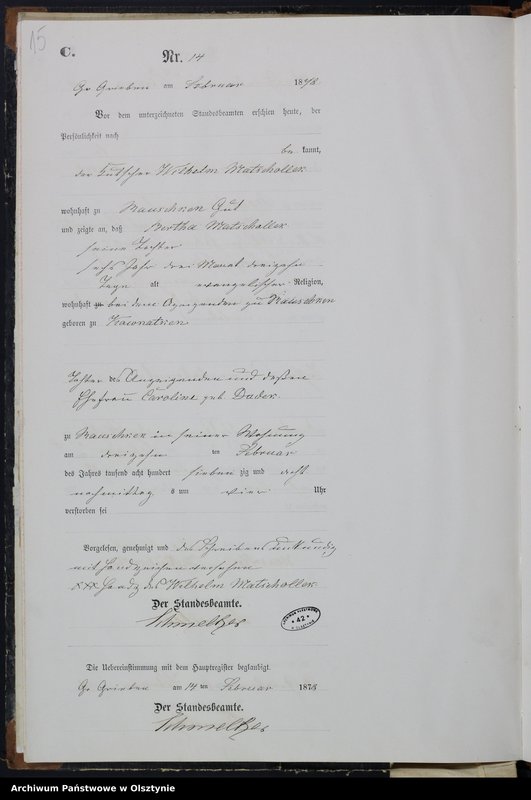 15
C.
Nr. 14
Gr Grieben am Februar 1878
Vor dem unterzeichneten Standesbeamten erschien heute, der
Persönlichkeit nach
be kannt,
der Kutscher Wilhelm Matscholler
wohnhaft zu Rauschken Gut
und zeigte an, daß Bertha Matscholler
seine Tochter
sechs Jahr drei Monat dreizehn
Tage alt evangelischer Religion,
wohnhaft zu bei dem Anzeigenden zu Rauschken
geboren zu Kownatken
Tochter des Anzeigenden und dessen
Ehefrau Caroline geb Dudek
zu Rauschken in seiner Wohnung
am dreizehn ten Februar
des Jahres tausend acht hundert sieben zig und acht
nachmittag s um vier Uhr
verstorben sei
Vorgelesen, genehmigt und des Schreibens unkundig
mit Handzeichen versehen
XXX Handz des Wilhelm Matscholler
Der Standesbeamte.
Schmeltzer
ARCHIWUM PAŃSTWOWE
* 42 *
W OLSZTYNIE
Die Uebereinstimmung mit dem Hauptregister beglaubigt.
Gr Grieben am 14 ten Februar 1878
Der Standesbeamte.
Schmeltzer
Archiwum Państwowe w Olsztynie